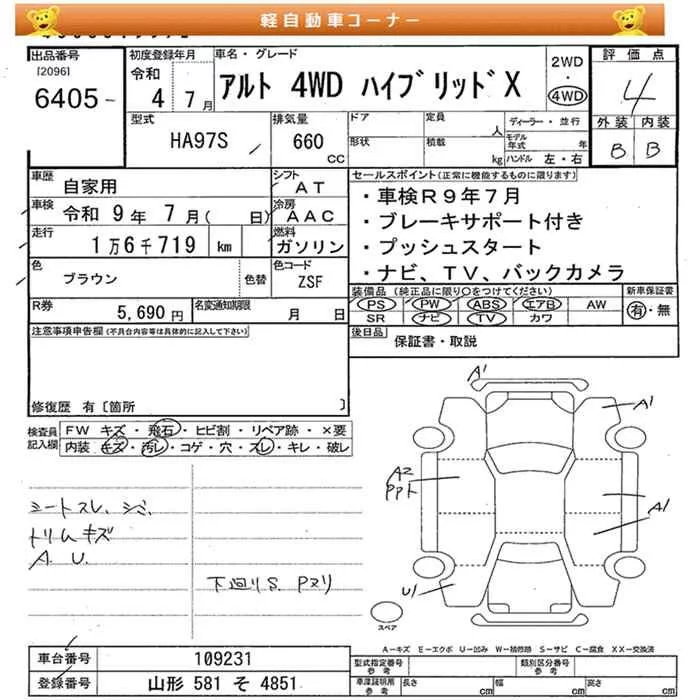 軽自動車コーナー
出品番号 初度登録年月 車名・グレード 2WD・4WD 評価点
[2096] 令和
6405 4 7月 アルト 4WD ハイブリッドX 4
型式 排気量 ドア 定員 人 ディーラー・並行 外装 内装
HA97S 660 CC 形状 積載 kg モデル年式 年 ハンドル 左・右 B B
車歴 自家用 シフト AT セールスポイント(正常に機能するものに限ります)
車検 令和 9年 7月( 日) 冷房 AAC ・車検R9年7月
走行 1万6千719 km 燃料 ガソリン ・ブレーキサポート付き
・プッシュスタート
色 ブラウン 色替 色コード ZSF ・ナビ、TV、バックカメラ
R券 5,690円 名変通知期限 月 日 装備品(純正品に限り○をつけてください) 新車保証書
PS PW ABS エアB AW 有・無
SR ナビ TV カワ
注意事項申告欄(不具合内容等は具体的に記入して下さい) 後日品
保証書・取説
修復歴 有〔箇所 〕
検査員記入欄 FW キズ・飛石・ヒビ割・リペア跡・×要
内装 キズ・汚レ・コゲ・穴・スレ・キレ・破レ
A1
A1
A2
PPト
A1
U1
シートスレ、シミ、
トリムキズ
A.U.
下廻りS.Pヌリ
スペア
A-キズ E-エクボ U-凹み W-補修跡 S-サビ C-腐食 XX-交換済
車台番号 109231 型式指定番号 参考 類別区分番号 参考
登録番号 山形 581 そ 4851 車庫証明用 参考 長さ cm 幅 cm 高さ cm